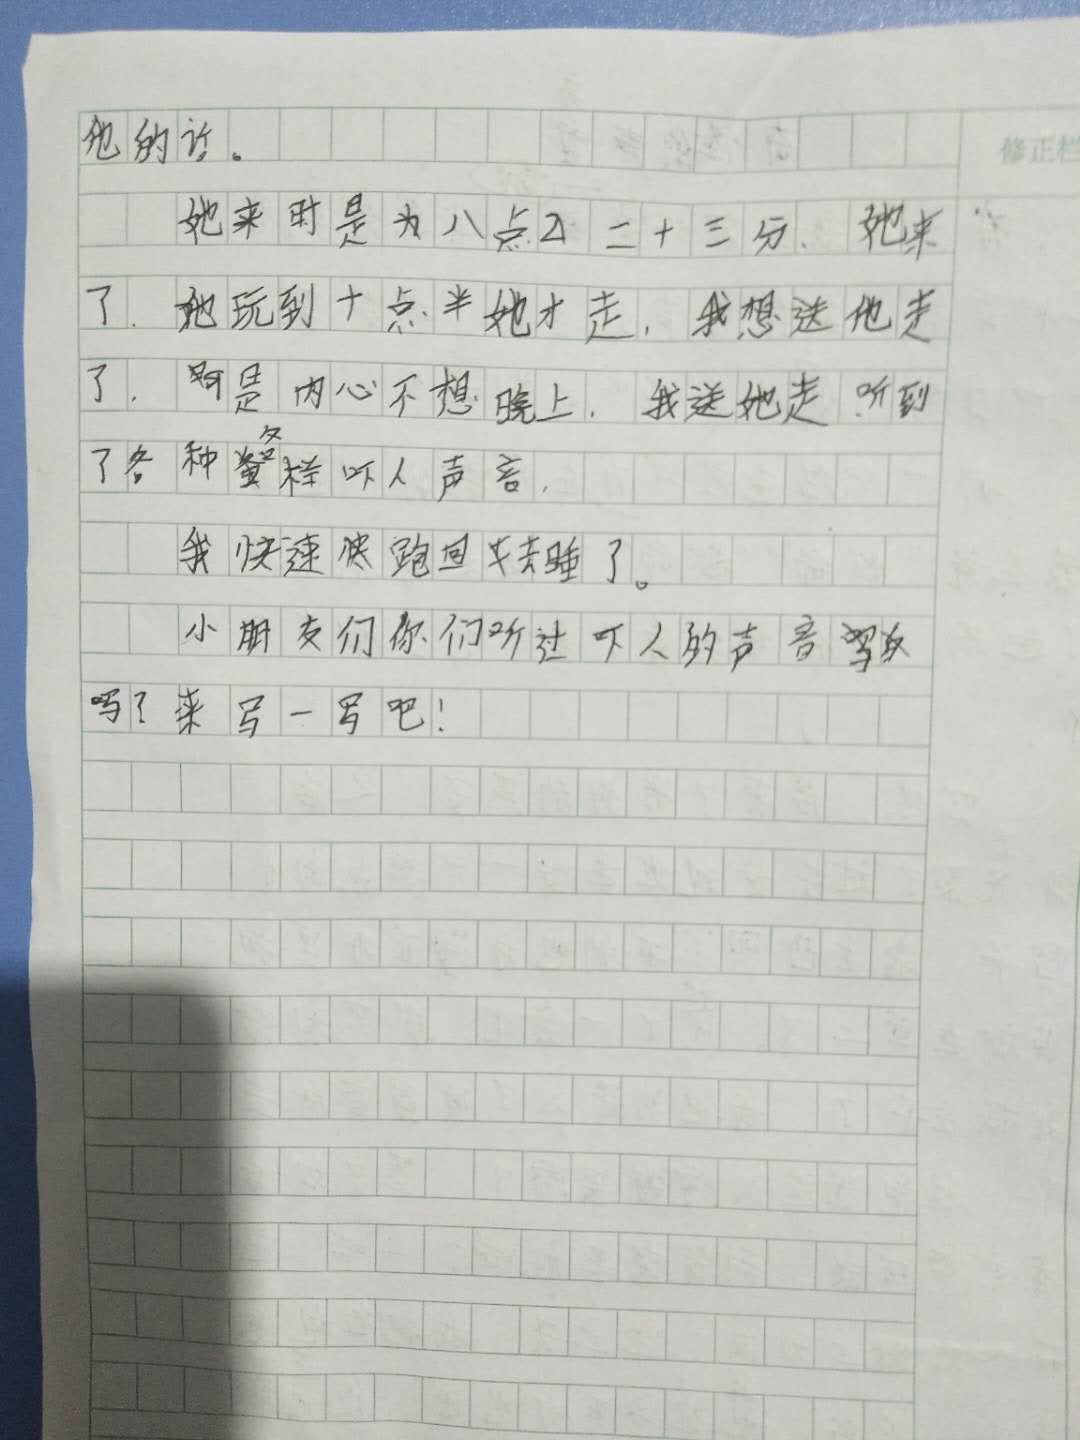 他的话。
修正栏
她来时是为八点 二十三分. 她来
了. 她玩到十点半她才走. 我想送他走
了. 可是内心不想晚上. 我送她走听到
了各种各样吓人声音.
我快速快跑回去睡了。
小朋友们你们听过吓人的声音
吗？来写一写吧！